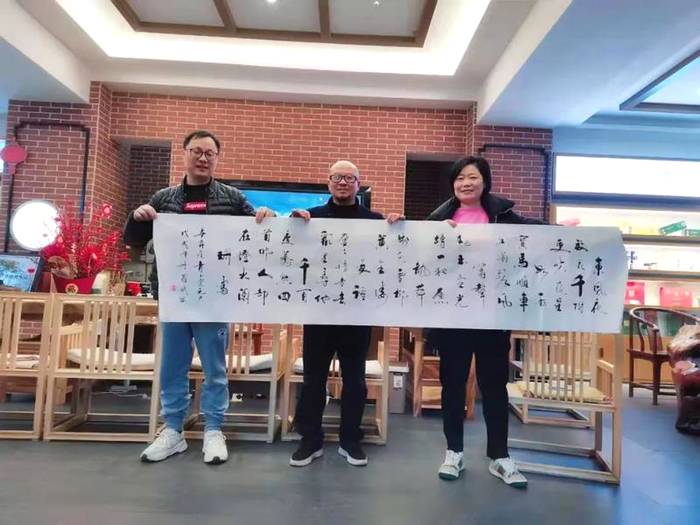 東風夜
放花千樹
更吹落星
如雨
寶馬雕車
香滿路鳳
簫聲
動玉壺光
轉一夜魚
龍舞
蛾兒雪柳
黃金縷
笑語
盈盈暗香去
眾里尋他
千百
度驀然回
首那人卻
在燈火闌
珊處
Supreme